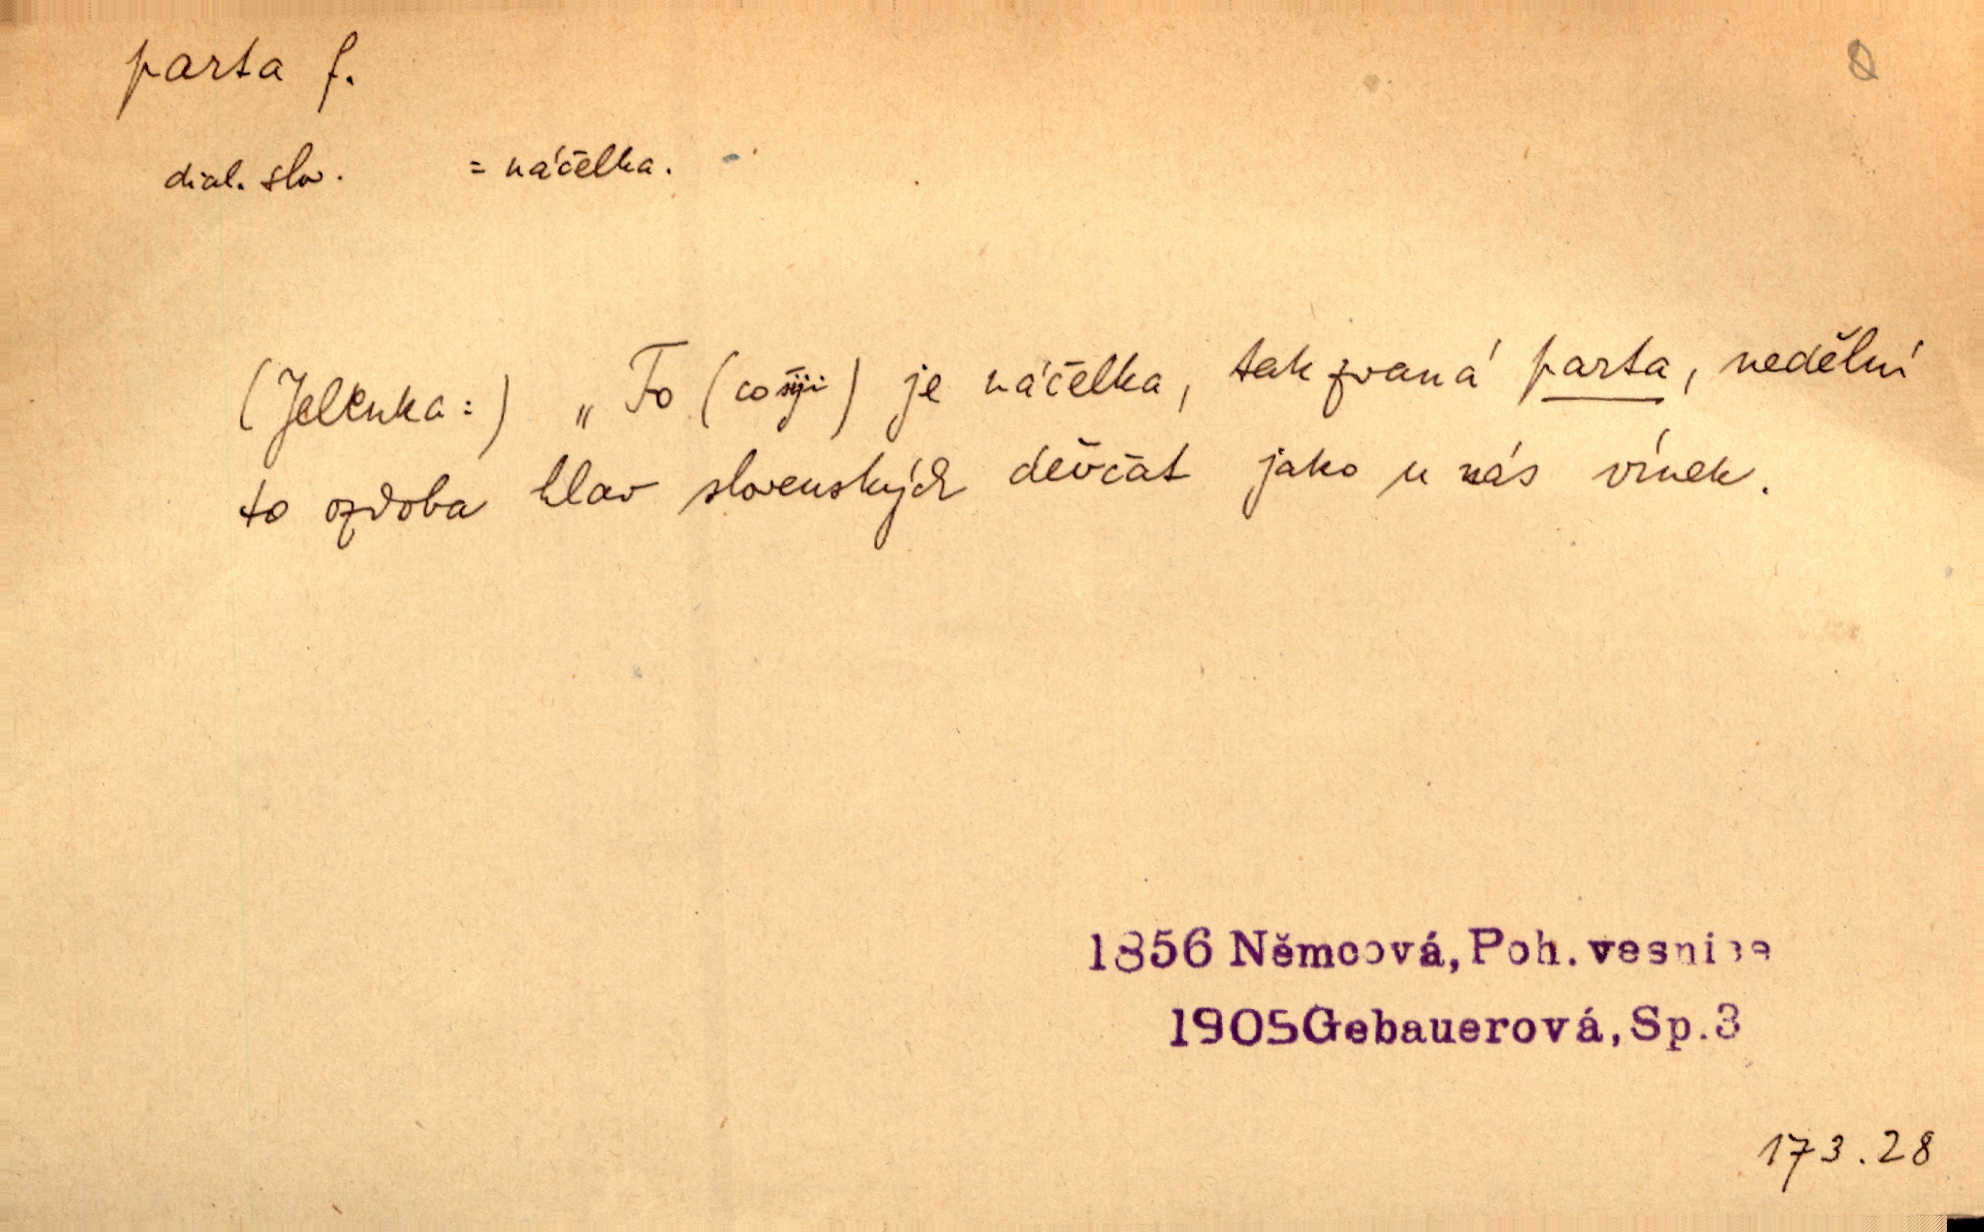 parta f.
dial. slov. = náčelka.
(Jelenka:) „To (co šije) je náčelka, tak zvaná parta, nedělní
to ozdoba hlav slovenských děvčat jako u nás vínek.
1856 Němcová, Poh. vesnice
1905 Gebauerová, Sp. 3
173.28